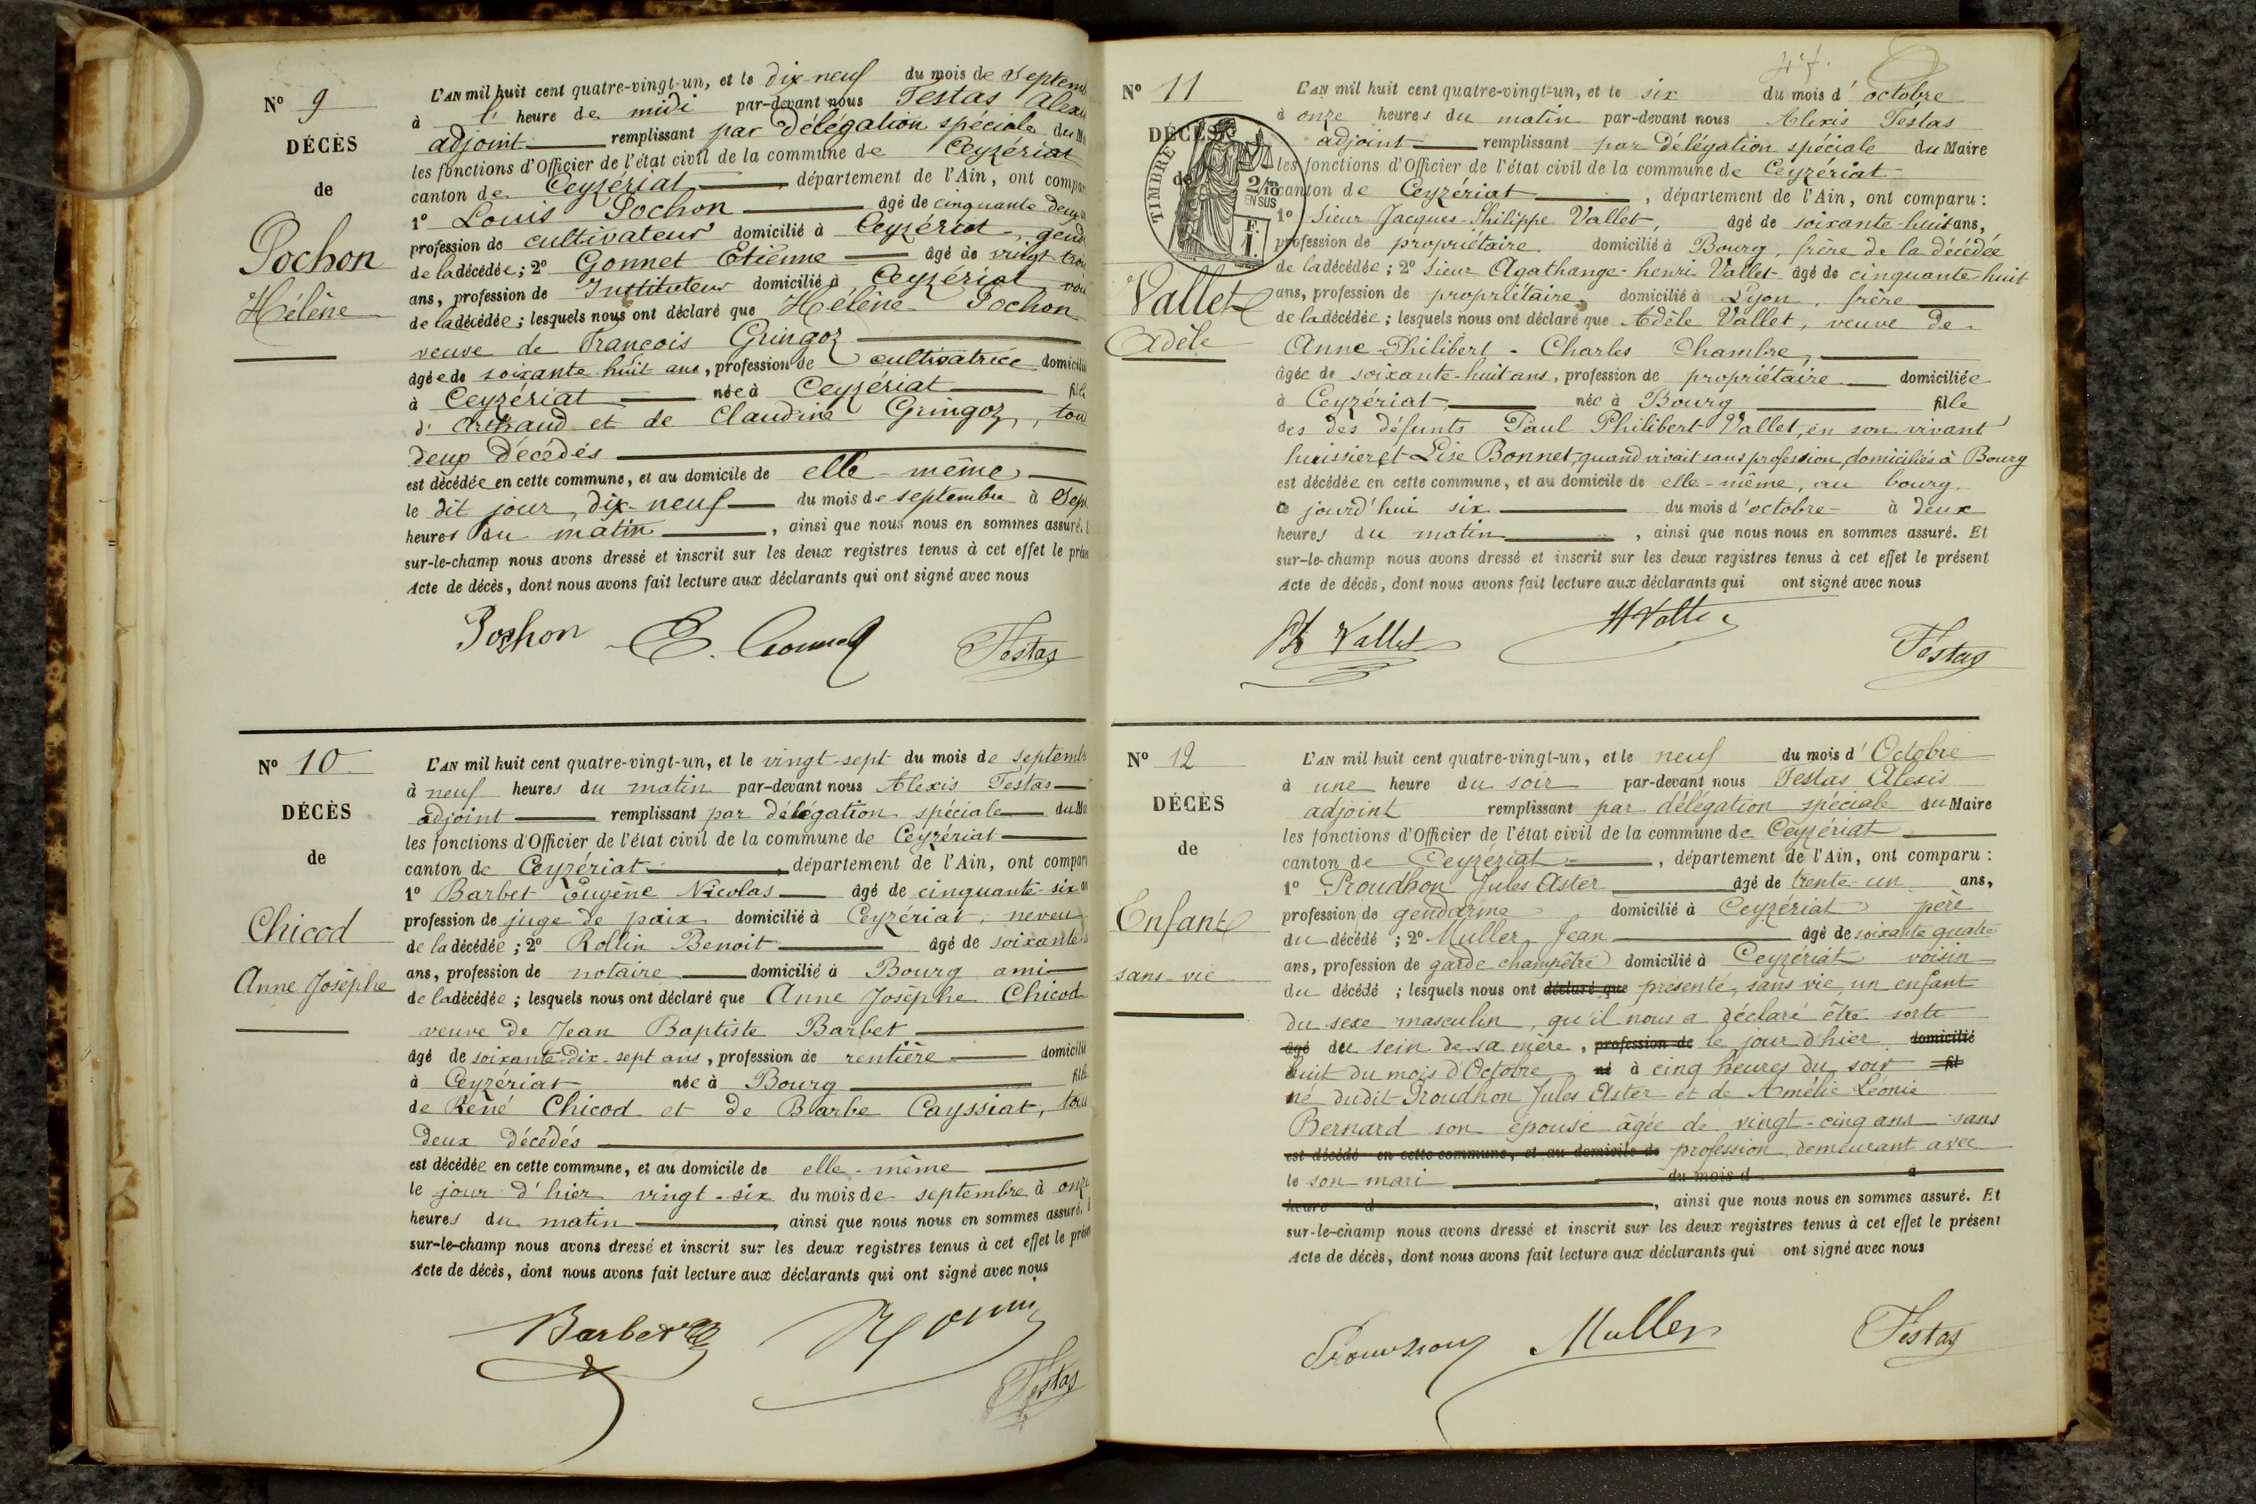 N° 9
DÉCÈS
de
Pochon
Hélène
L'AN mil huit cent quatre-vingt-un, et le dix-neuf du mois de septemb
à l' heure de midi par-devant nous Testas Alexi
adjoint remplissant par délégation spéciale du M
les fonctions d'Officier de l'état civil de la commune de Ceyzériat
canton de Ceyzériat, département de l'Ain, ont compar
1° Louis Pochon âgé de cinquante deux
profession de cultivateur domicilié à Ceyzériat, gend
de la décédée ; 2° Gonnet Etienne âgé de vingt-troi
ans, profession de Instituteur domicilié à Ceyzériat voi
de la décédée ; lesquels nous ont déclaré que Hélène Pochon
veuve de François Gringoz
âgée de soixante-huit ans, profession de cultivatrice domicilié
à Ceyzériat née à Ceyzériat fille
d' Arthaud et de Claudine Gringoz, tou
deux décédés
est décédée en cette commune, et au domicile de elle-même
le dit jour, dix-neuf du mois de septembre à Sept
heures du matin, ainsi que nous nous en sommes assuré.
sur-le-champ nous avons dressé et inscrit sur les deux registres tenus à cet effet le présen
Acte de décès, dont nous avons fait lecture aux déclarants qui ont signé avec nous
Pochon E. Gonnet Testas
N° 10
DÉCÈS
de
Chicod
Anne Josèphe
L'AN mil huit cent quatre-vingt-un, et le vingt-sept du mois de septembr
à neuf heures du matin par-devant nous Alexis Testas
adjoint remplissant par délégation spéciale du Ma
les fonctions d'Officier de l'état civil de la commune de Ceyzériat
canton de Ceyzériat, département de l'Ain, ont comparu
1° Barbet Eugène Nicolas âgé de cinquante-six an
profession de juge de paix domicilié à Ceyzériat, neveu
de la décédée ; 2° Rollin Benoit âgé de soixante
ans, profession de notaire domicilié à Bourg ami
de la décédée ; lesquels nous ont déclaré que Anne Josèphe Chicod
veuve de Jean Baptiste Barbet
âgé de soixante-dix-sept ans, profession de rentière domicilié
à Ceyzériat née à Bourg fille
de René Chicod et de Barbe Cayssiat, tous
deux décédés
est décédée en cette commune, et au domicile de elle-même
le jour d'hier vingt-six du mois de septembre à onze
heures du matin, ainsi que nous nous en sommes assuré.
sur-le-champ nous avons dressé et inscrit sur les deux registres tenus à cet effet le présen
Acte de décès, dont nous avons fait lecture aux déclarants qui ont signé avec nous
Barbet Testas
N° 11
DÉCÈS
de
Vallet
Adèle
TIMBRE
2/10mes
EN SUS
F.
1.
L'AN mil huit cent quatre-vingt-un, et le six du mois d' octobre
à onze heures du matin par-devant nous Alexis Testas
adjoint remplissant par délégation spéciale du Maire
les fonctions d'Officier de l'état civil de la commune de Ceyzériat
canton de Ceyzériat, département de l'Ain, ont comparu :
1° Sieur Jacques-Philippe Vallet, âgé de soixante-huit ans,
profession de propriétaire domicilié à Bourg, frère de la décédée
de la décédée ; 2° Sieur Agathange-henri Vallet âgé de cinquante-huit
ans, profession de propriétaire domicilié à Lyon, frère
de la décédée ; lesquels nous ont déclaré que Adèle Vallet, veuve de
Anne-Philibert-Charles Chambre,
âgée de soixante-huit ans, profession de propriétaire domiciliée
à Ceyzériat, née à Bourg fille
des dès défunts Paul Philibert Vallet, en son vivant
huissier et Lise Bonnet, quand vivait sans profession, domiciliés à Bourg
est décédée en cette commune, et au domicile de elle-même, au bourg
ce jourd'hui six du mois d'octobre à deux
heures du matin, ainsi que nous nous en sommes assuré. Et
sur-le-champ nous avons dressé et inscrit sur les deux registres tenus à cet effet le présent
Acte de décès, dont nous avons fait lecture aux déclarants qui ont signé avec nous
Ph Vallet H Vallet Testas
N° 12
DÉCÈS
de
Enfant
sans vie
L'AN mil huit cent quatre-vingt-un, et le neuf du mois d' Octobre
à une heure du soir par-devant nous Testas Alexis
adjoint remplissant par délégation spéciale du Maire
les fonctions d'Officier de l'état civil de la commune de Ceyzériat
canton de Ceyzériat, département de l'Ain, ont comparu :
1° Proudhon Jules Aster âgé de trente-un ans,
profession de gendarme domicilié à Ceyzériat père
du décédé ; 2° Muller Jean âgé de soixante quatre
ans, profession de garde champêtre domicilié à Ceyzériat voisin
du décédé ; lesquels nous ont déclaré que présenté, sans vie, un enfant
du sexe masculin, qu'il nous a déclaré être sorti
âgé du sein de sa mère, profession de le jour d'hier domicilié
huit du mois d'Octobre, né à cinq heures du soir fil
né dudit Proudhon Jules Aster et de Amélie Léonie
Bernard son épouse âgée de vingt-cinq ans sans
est décédé en cette commune, et au domicile de profession, demeurant avec
le son mari du mois d à
heure d, ainsi que nous nous en sommes assuré. Et
sur-le-champ nous avons dressé et inscrit sur les deux registres tenus à cet effet le présent
Acte de décès, dont nous avons fait lecture aux déclarants qui ont signé avec nous
Proudhon Muller Testas